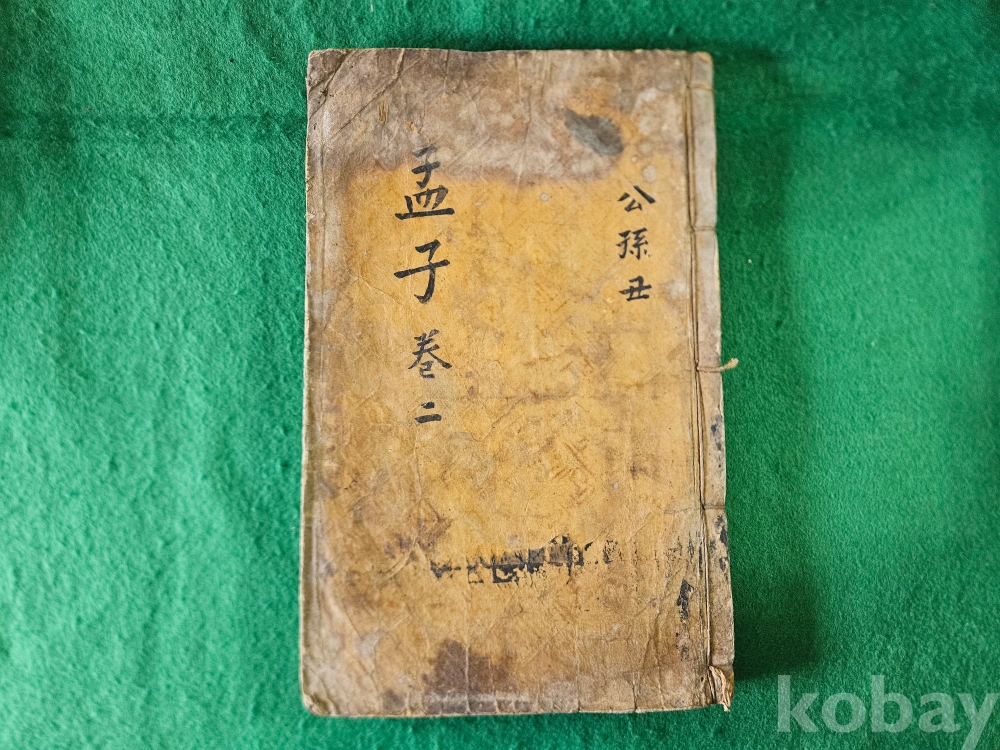 公孫丑
孟子 卷二
kobay